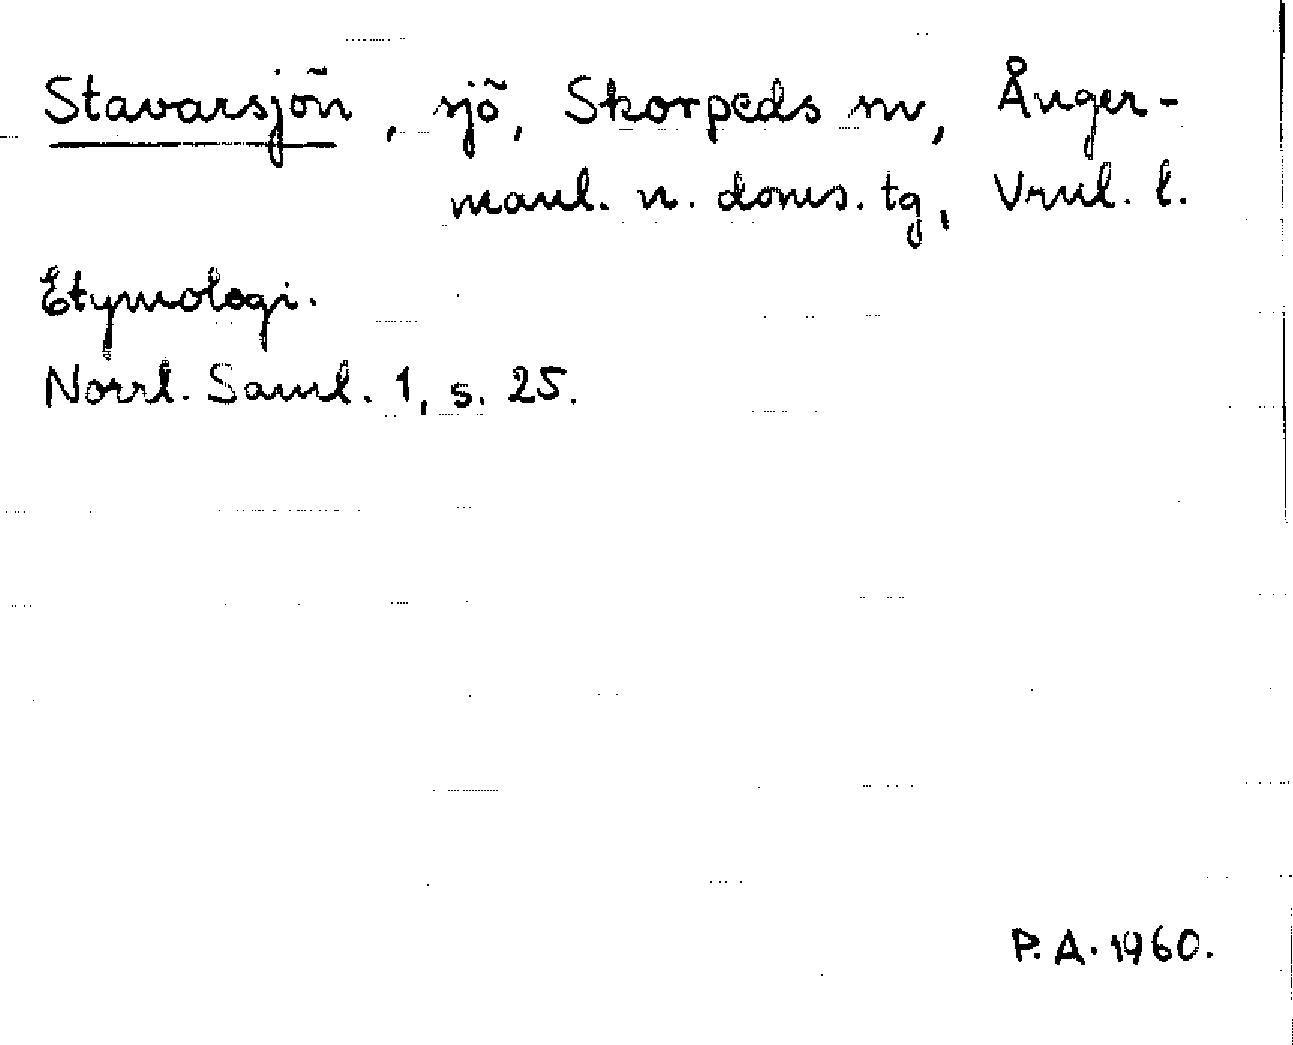 Stavarsjön, sjö, Skorpeds sn, Ånger-
manl. n. doms. tg, Vrnl. l.
Etymologi.
Norrl. Saml. 1, s. 25.
P. A. 1960.